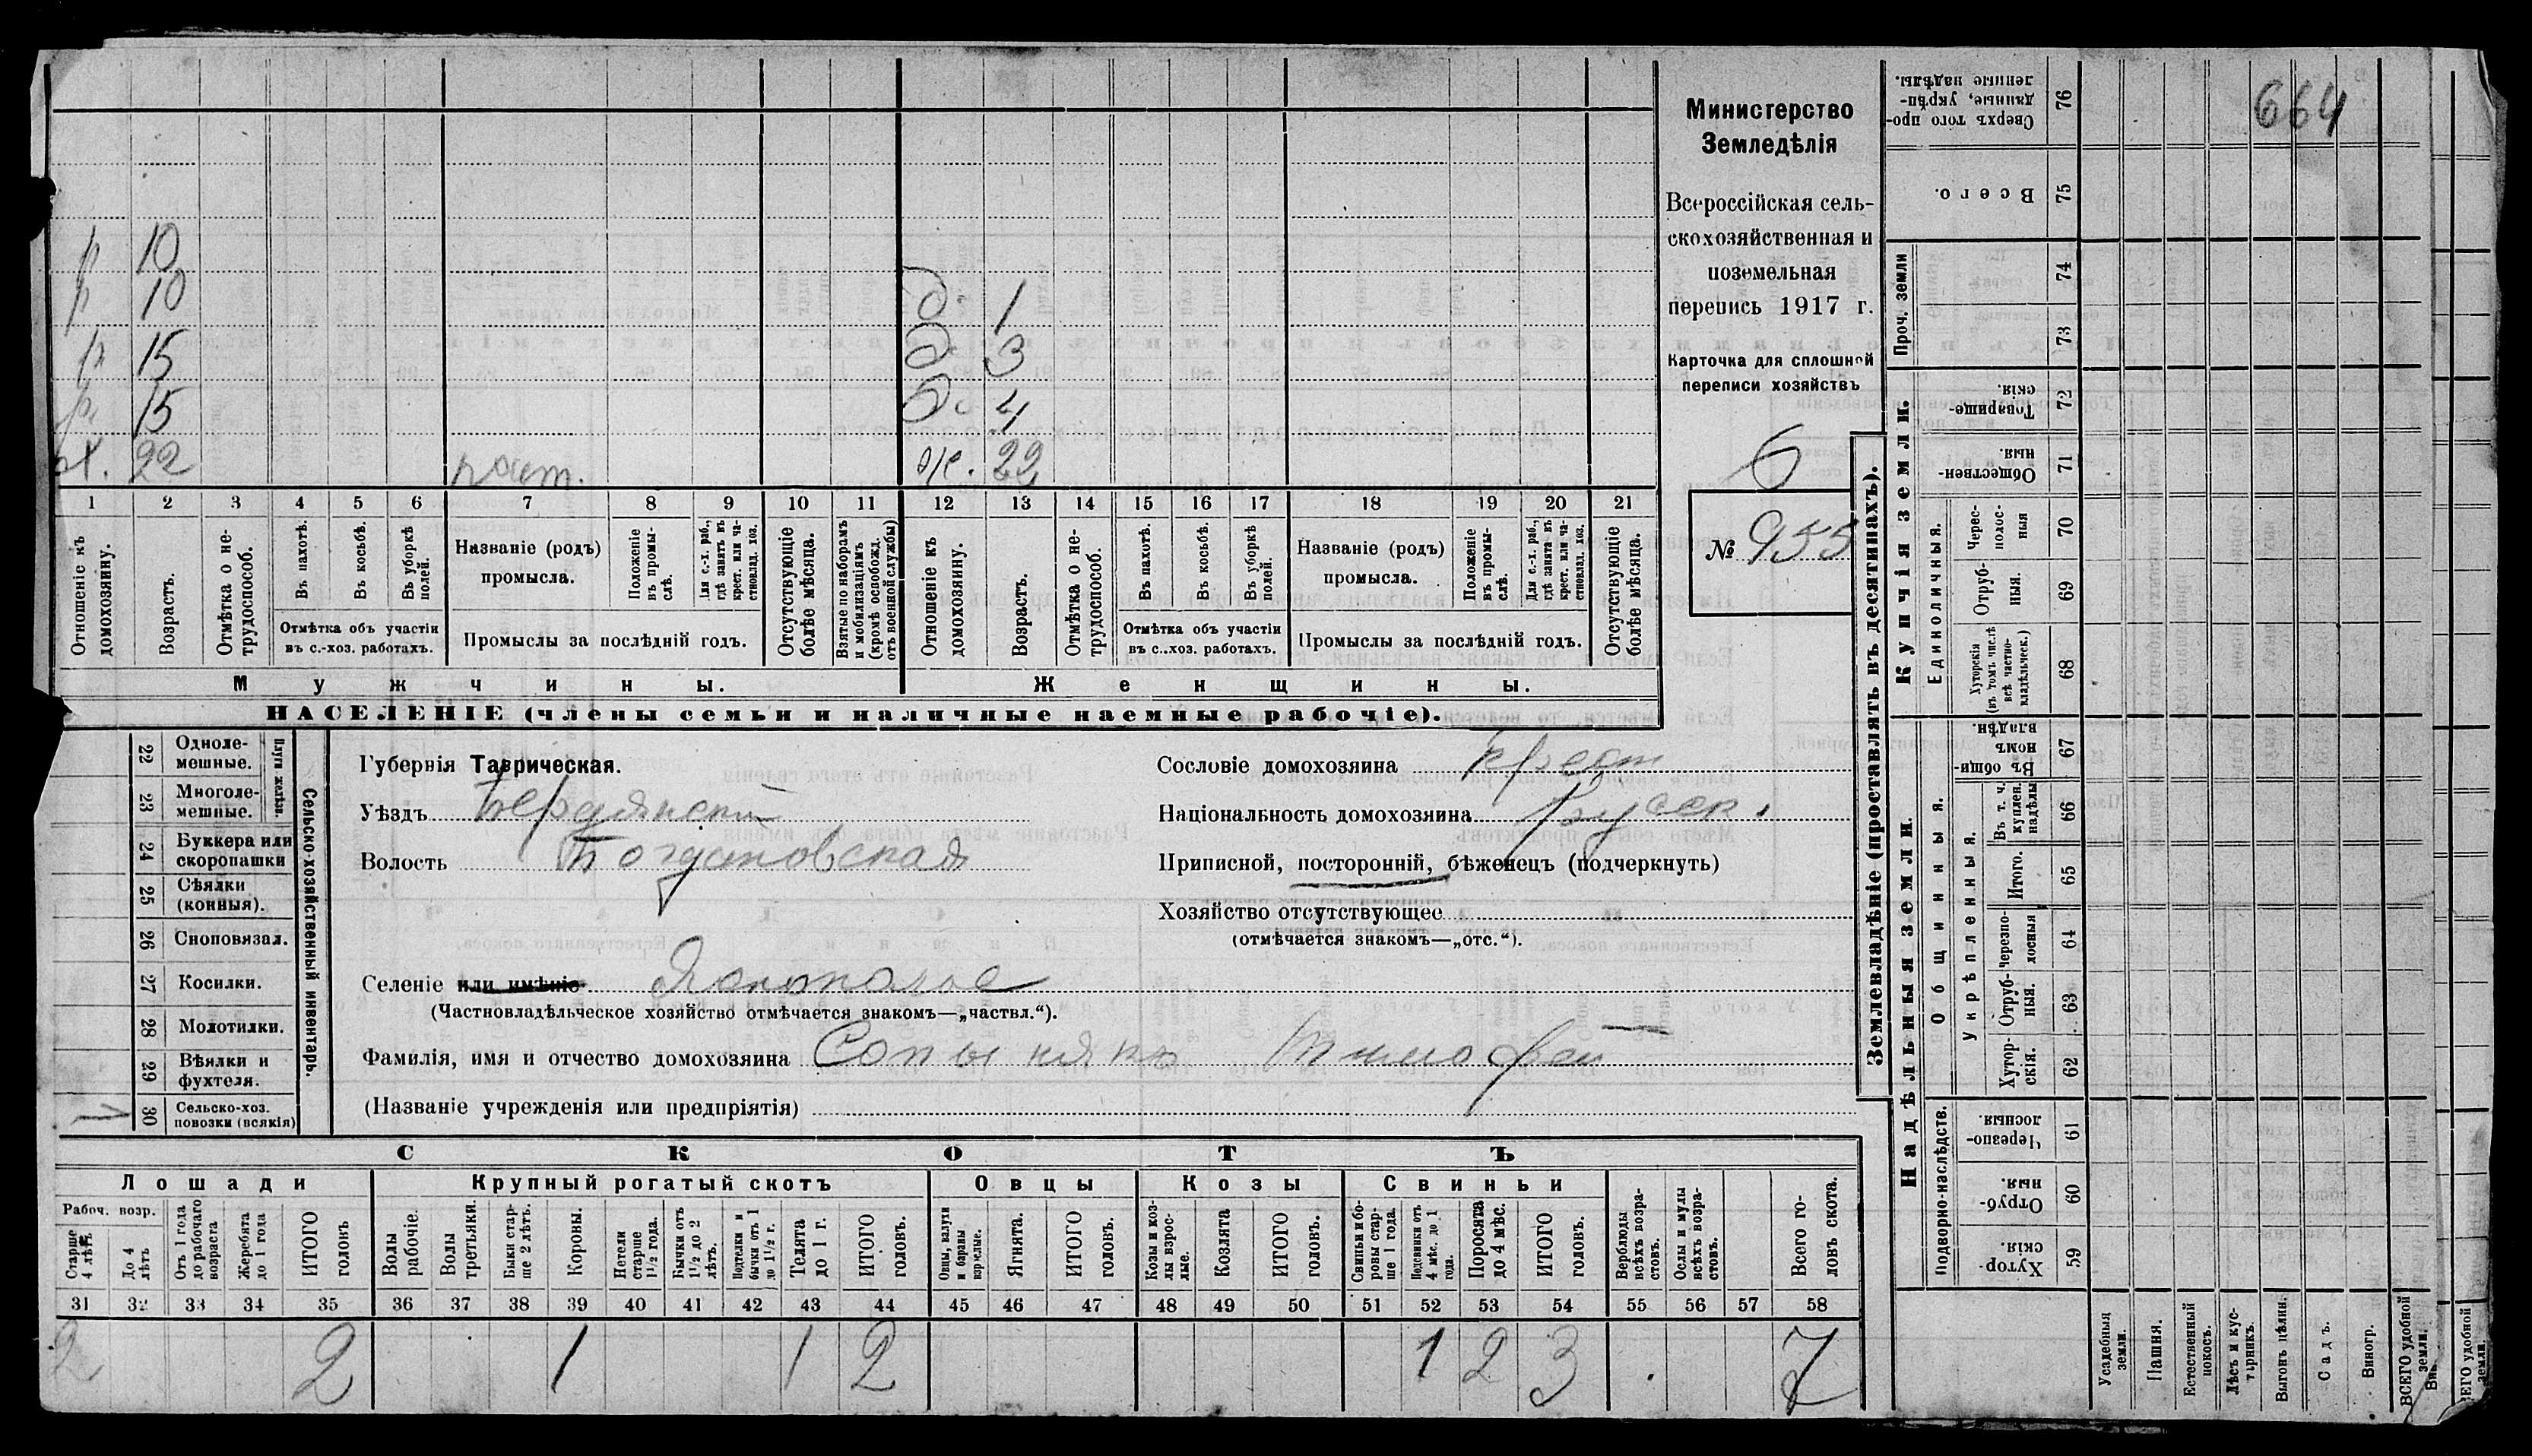 664
Министерство
Земледѣлія
Всероссійская сель-
скохозяйственная и
поземельная
перепись 1917 г.
Карточка для сплошной
переписи хозяйствъ
6
№ 955
р 10
р 10
р 15
р 15
х. 22
д. 1
д 3
д. 4
ж. 22
1 2 3 4 5 6 7 8 9 10 11 12 13 14 15 16 17 18 19 20 21
Отношеніе къ домохозяину.
Возрастъ.
Отмѣтка о не-трудоспособ.
Въ пахотѣ.
Въ косьбѣ.
Въ уборкѣ полей.
Отмѣтка объ участіи
въ с.-хоз. работахъ.
Названіе (родъ)
промысла.
Положеніе въ промы-слѣ.
Для с.-х. раб., гдѣ занятъ въ крест. или ча-стновлад. хоз.
Промыслы за послѣдній годъ.
Отсутствующіе болѣе мѣсяца.
Взятые по наборамъ и мобилизаціямъ (кромѣ освобожд. отъ военной службы)
Отношеніе къ домохозяину.
Возрастъ.
Отмѣтка о не-трудоспособ.
Въ пахотѣ.
Въ косьбѣ.
Въ уборкѣ полей.
Отмѣтка объ участіи
въ с..хоз. работахъ.
Названіе (родъ)
промысла.
Положеніе въ промы-слѣ.
Для с.-х. раб., гдѣ занята въ крест. или ча-стновлад. хоз.
Промыслы за послѣдній годъ.
Отсутствующіе болѣе мѣсяца.
Мужчины. Женщины.
НАСЕЛЕНІЕ (члены семьи и наличные наемные рабочіе).
22 Одноле-мешные.
23 Многоле-мешные.
Плуги желѣзн.
24 Буккера или скоропашки
25 Сѣялки (конныя).
26 Сноповязал.
27 Косилки.
28 Молотилки.
29 Вѣялки и фухтеля.
30 Сельско-хоз. повозки (всякія)
1
Сельско-хозяйственный инвентарь.
Губернія Таврическая.
Уѣздъ Бердянскій
Волость Богдановская
Селеніе или имѣніе
(Частновладѣльческое хозяйство отмѣчается знакомъ—„частвл.“).
Фамилія, имя и отчество домохозяина Сопынякъ Тимофей —
(Названіе учрежденія или предпріятія)
Сословіе домохозяина крест
Національность домохозяина русск.
Приписной, посторонній, бѣженецъ (подчеркнуть)
Хозяйство отсутствующее
(отмѣчается знакомъ—„отс.“).
СКОТЪ
Лошади Крупный рогатый скотъ Овцы Козы Свиньи
Рабоч. возр.
Старше 4 лѣтъ
До 4 лѣтъ
Отъ 1 года до рабочаго возраста
Жеребята до 1 года
ИТОГО головъ
Волы рабочіе.
Волы третьяки.
Быки стар-ше 2 лѣтъ.
Коровы.
Нетели старше 1½ года.
Бычки отъ 1½ до 2 лѣтъ.
Подтелки и бычки отъ 1 до 1½ г.
Телята до 1 г.
ИТОГО головъ.
Овцы, валухи и бараны взрослые.
Ягнята.
ИТОГО головъ.
Козы и коз-лы взрос-лые.
Козлята
ИТОГО головъ.
Свиньи и бо-ровы стар-ше 1 года.
Подсвинки отъ 4 мѣс. до 1 года.
Поросята до 4 мѣс.
ИТОГО головъ.
Верблюды всѣхъ возра-стовъ.
Ослы и мулы всѣхъ возра-стовъ.
Всего го-ловъ скота.
31 32 33 34 35 36 37 38 39 40 41 42 43 44 45 46 47 48 49 50 51 52 53 54 55 56 57 58
2 2 1 1 2 1 2 3 7
Землевладѣніе (проставлять въ десятинахъ).
Купчія земли.
Надѣльныя земли.
Сверхъ того про-данные, укрѣп-ленные надѣлы. 76
Всего. 75
Проч. земли 74
73
Товарище-скія. 72
Обществен-ныя. 71
Единоличныя.
Черес-полос-ныя 70
Отруб-ныя. 69
Хуторскія (въ томъ числѣ всѣ частно-владѣльческ.) 68
Въ общи-номъ владѣн. 67
Общинныя.
Укрѣпленныя.
Въ т. ч. куплен. надѣлы 66
Итого. 65
Черезпо-лосныя 64
Отруб-ныя. 63
Хутор-скія. 62
Подворно-наслѣдств.
Черезпо-лосныя 61
Отруб-ныя. 60
Хутор-скія. 59
Усадебныя земли.
Пашня.
Естественный покосъ.
Лѣсъ и кус-тарникъ.
Выгонъ цѣлин.
Садъ.
Виногр.
ВСЕГО удобной земли.
ВСЕГО удобной земли.